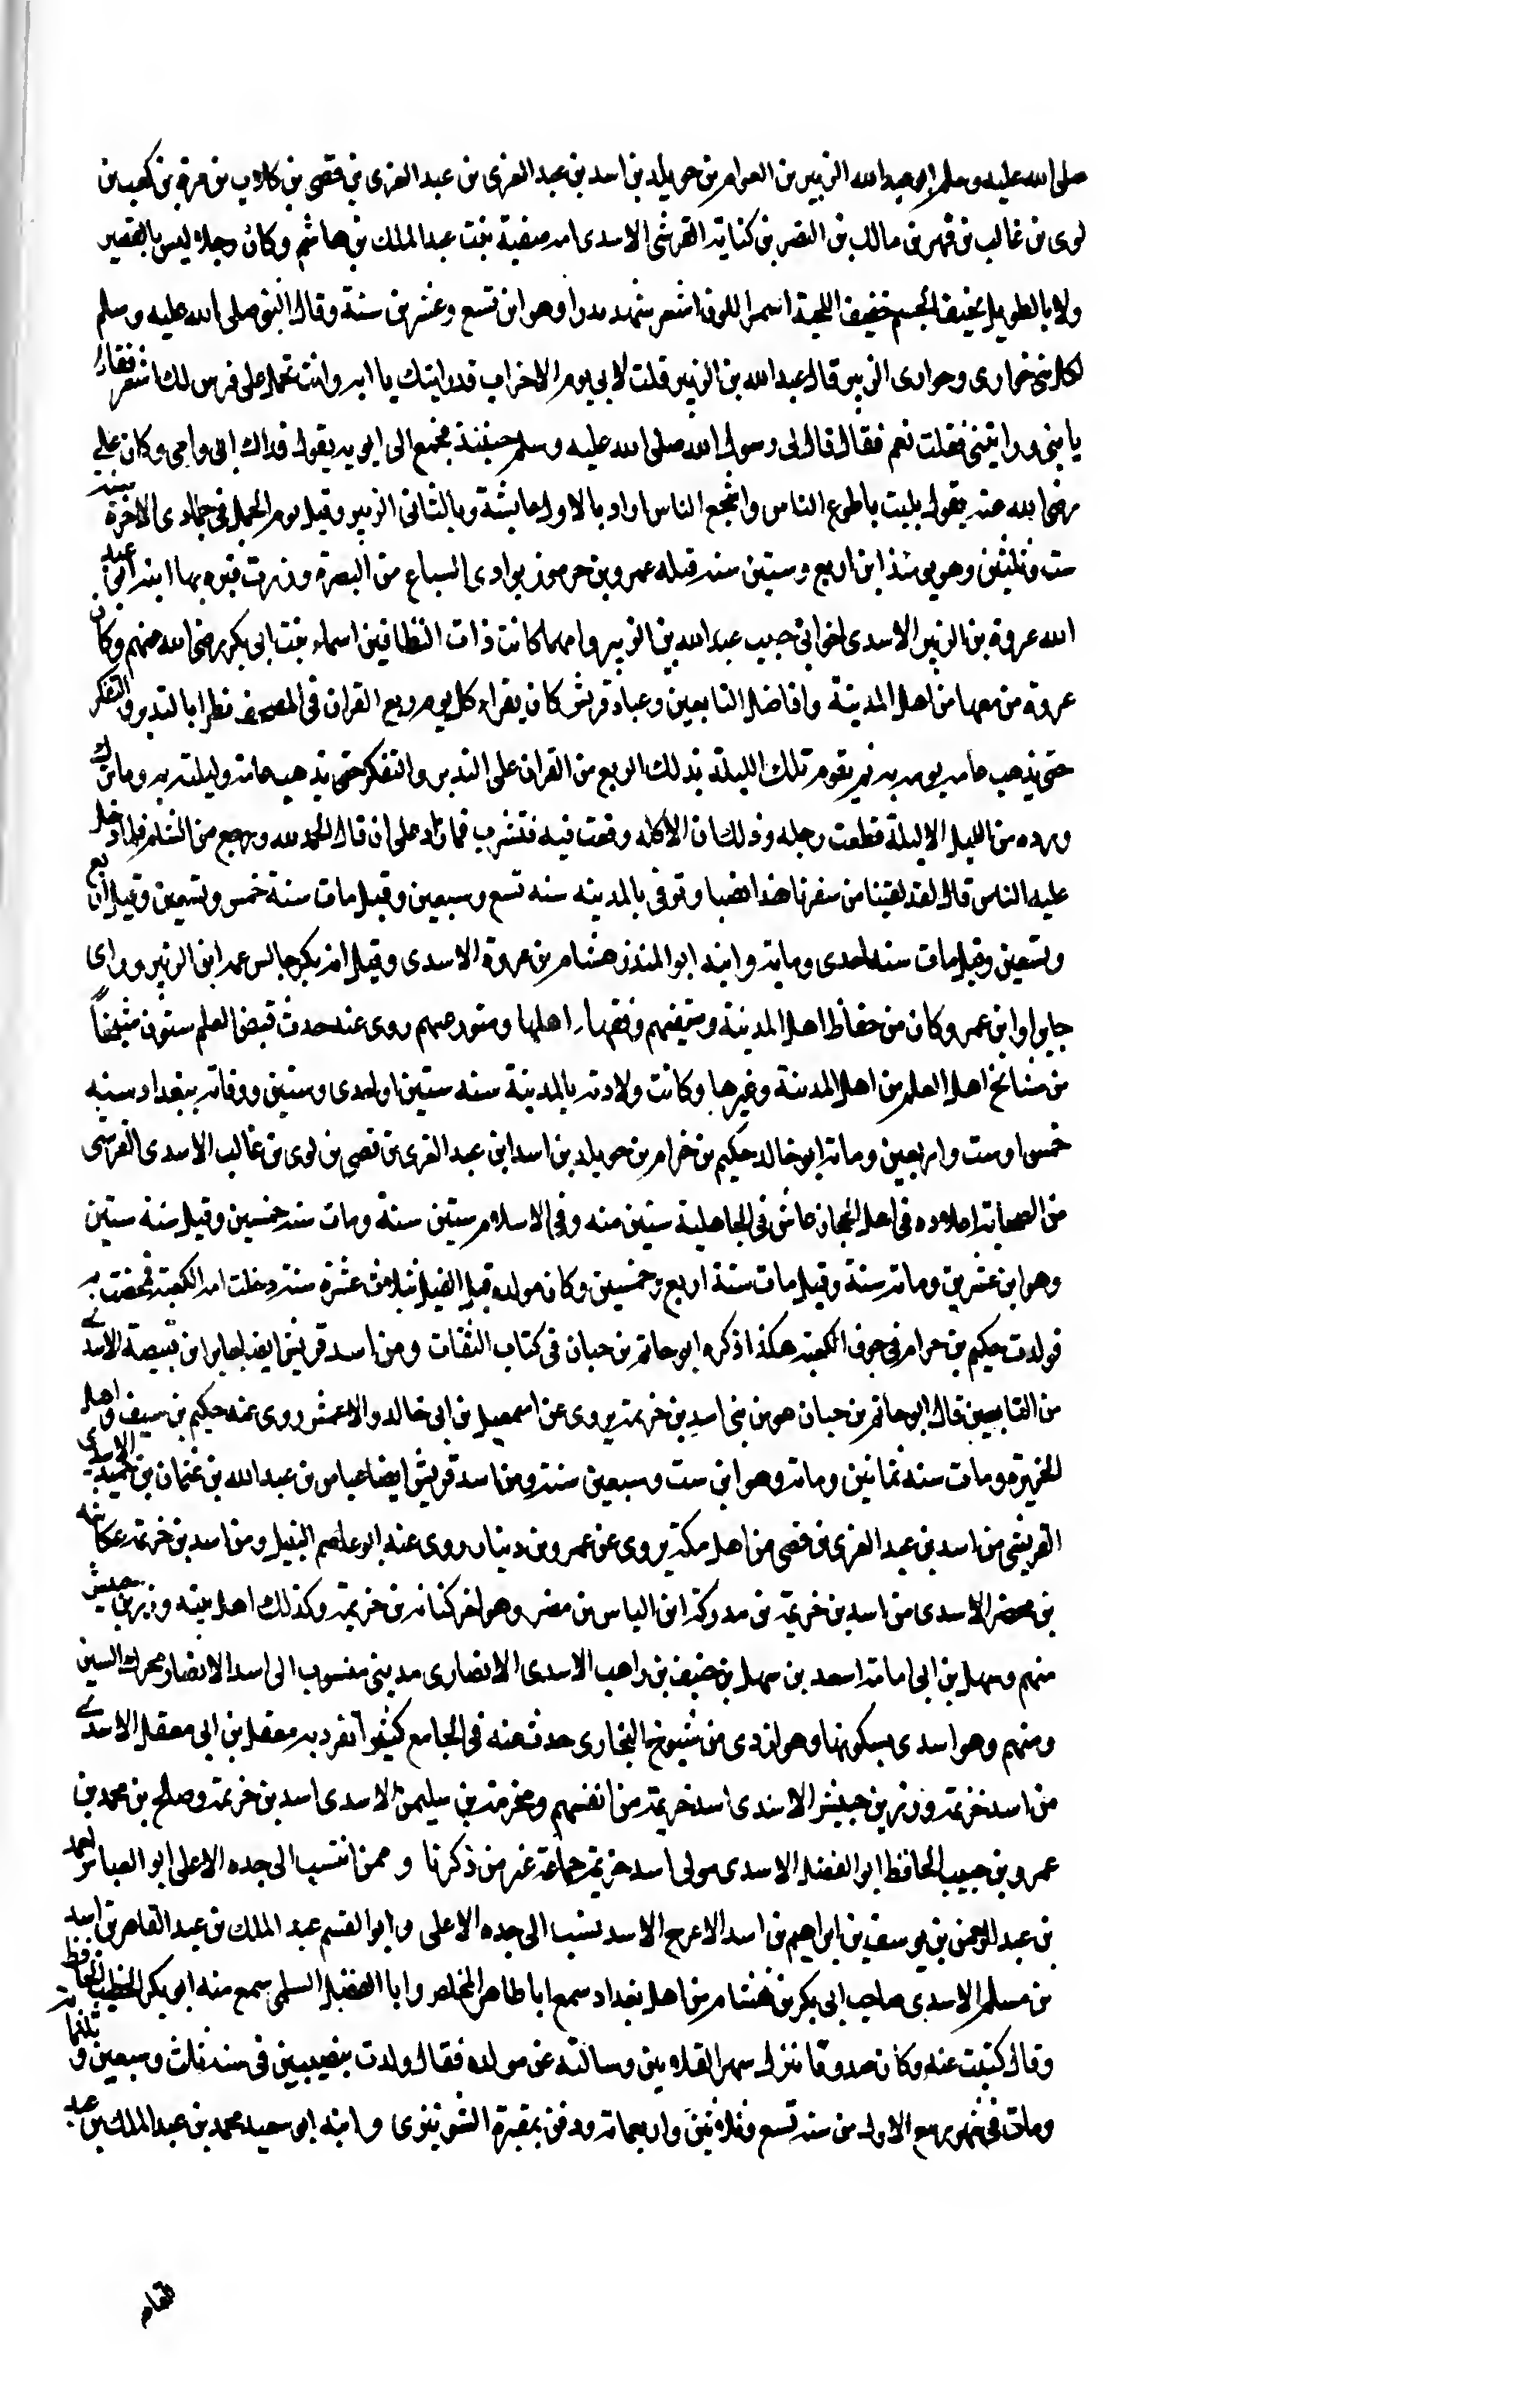 صلى الله عليه وسلم ابو عبد الله الزبير بن العوام بن خويلد بن اسد بن عبد العزى بن عبد العزى بن قصى بن كلاب بن مرة بن كعب بن
لوى بن غالب بن فهر بن مالك بن النضر بن كنانة القرشى الاسدى امه صفية بنت عبد الملك بن هاشم وكان رجلا ليس بالقصير
ولا بالطويل نحيف الجسم خفيف اللحية اسمر اللون اشعر شهد بدرا وهو ابن تسع وعشرين سنة وقال النبى صلى الله عليه وسلم
لكل نبى حوارى وحوارى الزبير قال عبد الله بن الزبير قلت لابى يوم الاحزاب قد رايتك يا ابه وانت تحمل على فرس لك اشقر فقال
يا بنى ورايتنى فقلت نعم فقال قال لى رسول الله صلى الله عليه وسلم حينئذ فجمع الى ابويه يقول فداك ابى وامى وكان على
رضى الله عنه يقول بليت باطوع الناس واشجع الناس اراد بالاول عايشة وبالثانى الزبير وقتل يوم الجمل فى جمادى الاخرة سنة
ست وثلثين وهو يومئذ ابن اربع وستين سنه قتله عمرو بن جرموز بوادى السباع من البصرة وزرت قبره بها ابنه ابو عبد
الله عروة بن الزبير الاسدى اخو ابى حبيب عبد الله بن الزبير وامهما كانت ذات النطاقين اسماء بنت ابى بكر رضى الله عنهم وكان
عروة من فقها من اهل المدينة وافاضل التابعين وعباد قريش كان يقراء كل يوم ربع القران فى المصحف نظرا بالتدبر والتفكر
حتى يذهب عامه يومه به ثم يقوم تلك الليلة بذلك الربع من القران على التدبر والتفكر حتى يذهب عامه وليلته به وما ترك
ورده من الليل الا ليلة قطعت رجله وذلك ان الاكله وقعت فيه فنشرت فما زاد على ان قال الحمد لله ورجع من الشام فلما دخل
عليه الناس قال لقد لقينا من سفرنا هذا نصبا وتوفى بالمدينه سنه تسع وسبعين وقيل مات سنة خمس وتسعين وقيل اربع
وتسعين وقيل مات سنه احدى وماية وابنه ابو المنذر هشام بن عروة الاسدى وقيل ابو بكر جالس عمه ابن الزبير وراى
جابرا وابن عمر وكان من حفاظ اهل المدينة ومتقنيهم وفقهاء اهلها ومتورعيهم روى عنه حديث قبض العلم ستون شيخا
من مشائخ اهل العلم من اهل المدينة وغيرها وكانت ولادته بالمدينة سنه ستين او احدى وستين ووفاته ببغداد سنه
خمس او ست واربعين وماية ابو خالد حكيم بن حزام بن خويلد بن اسد ابن عبد العزى بن قصى بن لوى بن غالب الاسدى القرشى
من الصحابة عداده فى اهل الحجاز عاش فى الجاهلية ستين سنه وفى الاسلام ستين سنة ومات سنه خمسين وقيل سنة ستين
وهو ابن عشرين وماية سنة وقيل مات سنة اربع وخمسين وكان مولده قبل الفيل بثلاث عشرة سنة دخلت امه الكعبة فمخضت به
فولدت حكيم بن حزام فى جوف الكعبة هكذا ذكره ابو حاتم بن حبان فى كتاب الثقات ومن اسد قريش ايضا جابر ابن قبيصة الاسدى
من التابعين قال ابو حاتم بن حبان هو من بنى اسد بن خزيمة يروى عن اسمعيل بن ابى خالد والاعمش روى عنه حكيم بن سيف واهل
الجزيرة ومات سنه ثمانين وماية وهو ابن ست وسبعين سنة ومن اسد قريش ايضا عباس بن عبد الله بن عثمان بن حميد الاسدى
القريشى من اسد بن عبد العزى بن قصى من اهل مكة يروى عن عمرو بن دينار روى عنه ابو عاصم النبيل ومن اسد بن خزيمة عكاشه
بن محصن الاسدى من اسد بن خزيمة بن مدركة ابن الياس بن مضر وهو اخو كنانة بن خزيمة وكذلك اهل بيته وزر بن حبيش
منهم وسهل بن ابى امامة اسعد بن سهل بن حنيف بن راهب الاسدى الانصارى مدينى منسوب الى اسد الانصار محرك السين
ومنهم وهو اسدى بسكونها وهو ازدى من شيوخ البخارى حدث عنه فى الجامع كثيرا تفرد به معقل بن ابى معقل الاسدى
من اسد خزيمة وزر بن حبيش الاسدى اسد خزيمة من انفسهم ومخرمة بن سليمن الاسدى اسد بن خزيمة وصلح بن محمد بن
عمرو بن حبيب الحافظ ابو الفضل الاسدى مولى اسد خزيمة جماعة غير من ذكرنا وممن انتسب الى جده الاعلى ابو العباس احمد
بن عبد الرحمن بن يوسف بن ابراهيم بن اسد الاعرج الاسد نسب الى جده الاعلى وابو القسم عبد الملك بن عبد القاهر بن اسد
بن مسلم الاسدى صاحب ابى بكر بن هشام من اهل بغداد سمع ابا طاهر المخلص وابا الفضل السلمى سمع منه ابو بكر الخطيب الحافظ
وقال كتبت عنه وكان صدوقا ينزل سهر القلايين وسالته عن مولده فقال ولدت بنصيبين فى سنه ثلث وسبعين وثلثماية
ومات فى شهر ربيع الاول من سنه تسع وثلاثين واربعماية ودفن بمقبرة الشونيزى وابنه ابو سعيد محمد بن عبد الملك بن عبد
القاهر